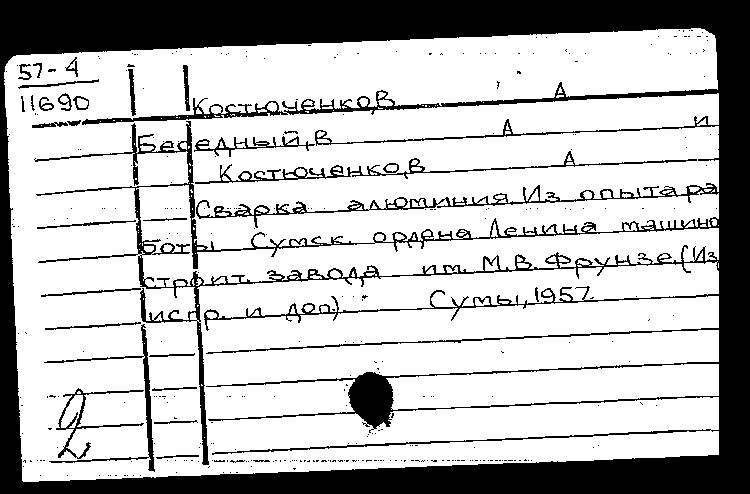 57-4
11690
Костюченко,В А
Беседный,В А и
Костюченко,В А
Сварка алюминия.Из опыта ра
боты Сумск. ордена Ленина машино
строит. завода им. М.В.Фрунзе.(Из
испр. и доп). Сумы,1957.
2